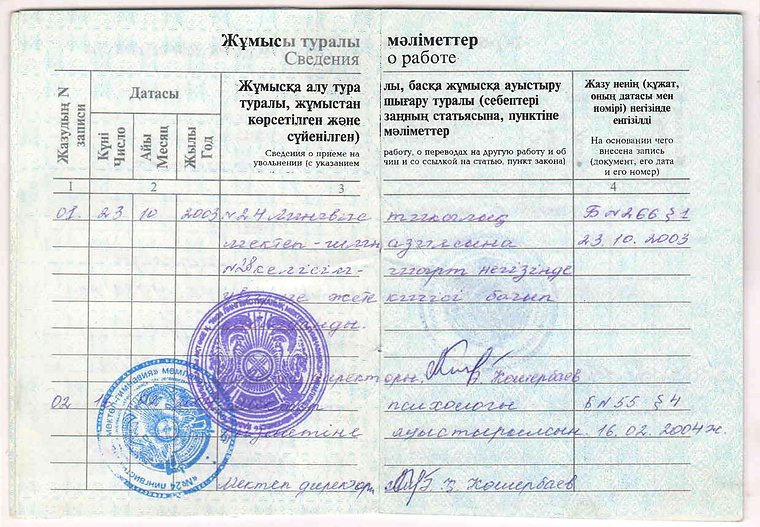 Жұмысы туралы мәліметтер
Сведения о работе
Жазудың N
записи
Датасы
Күні
Число
Айы
Месяц
Жылы
Год
Жұмысқа алу тура лы, басқа жұмысқа ауыстыру
туралы, жұмыстан шығару туралы (себептері
көрсетілген және заңның статьясына, пунктіне
сүйенілген) мәліметтер
Сведения о приеме на работу, о переводах на другую работу и об
увольнении (с указанием чин и со ссылкой на статью, пункт закона)
Жазу ненің (құжат,
оның датасы мен
номірі) негізінде
енгізілді
На основании чего
внесена запись
(документ, его дата
и его номер)
1 2 3 4
01. 23 10 2003 №24 Лингвис тикалық Б №266 §1
мектеп-гимн азиясына 23.10.2003
№28 келісім- шарт негізінде
жете кшісі болып
директоры. Кошербаев
02 психологы Б №55 §4
қызметіне ауыстырылсын. 16.02.2004ж.
Мектеп директоры Кошербаев